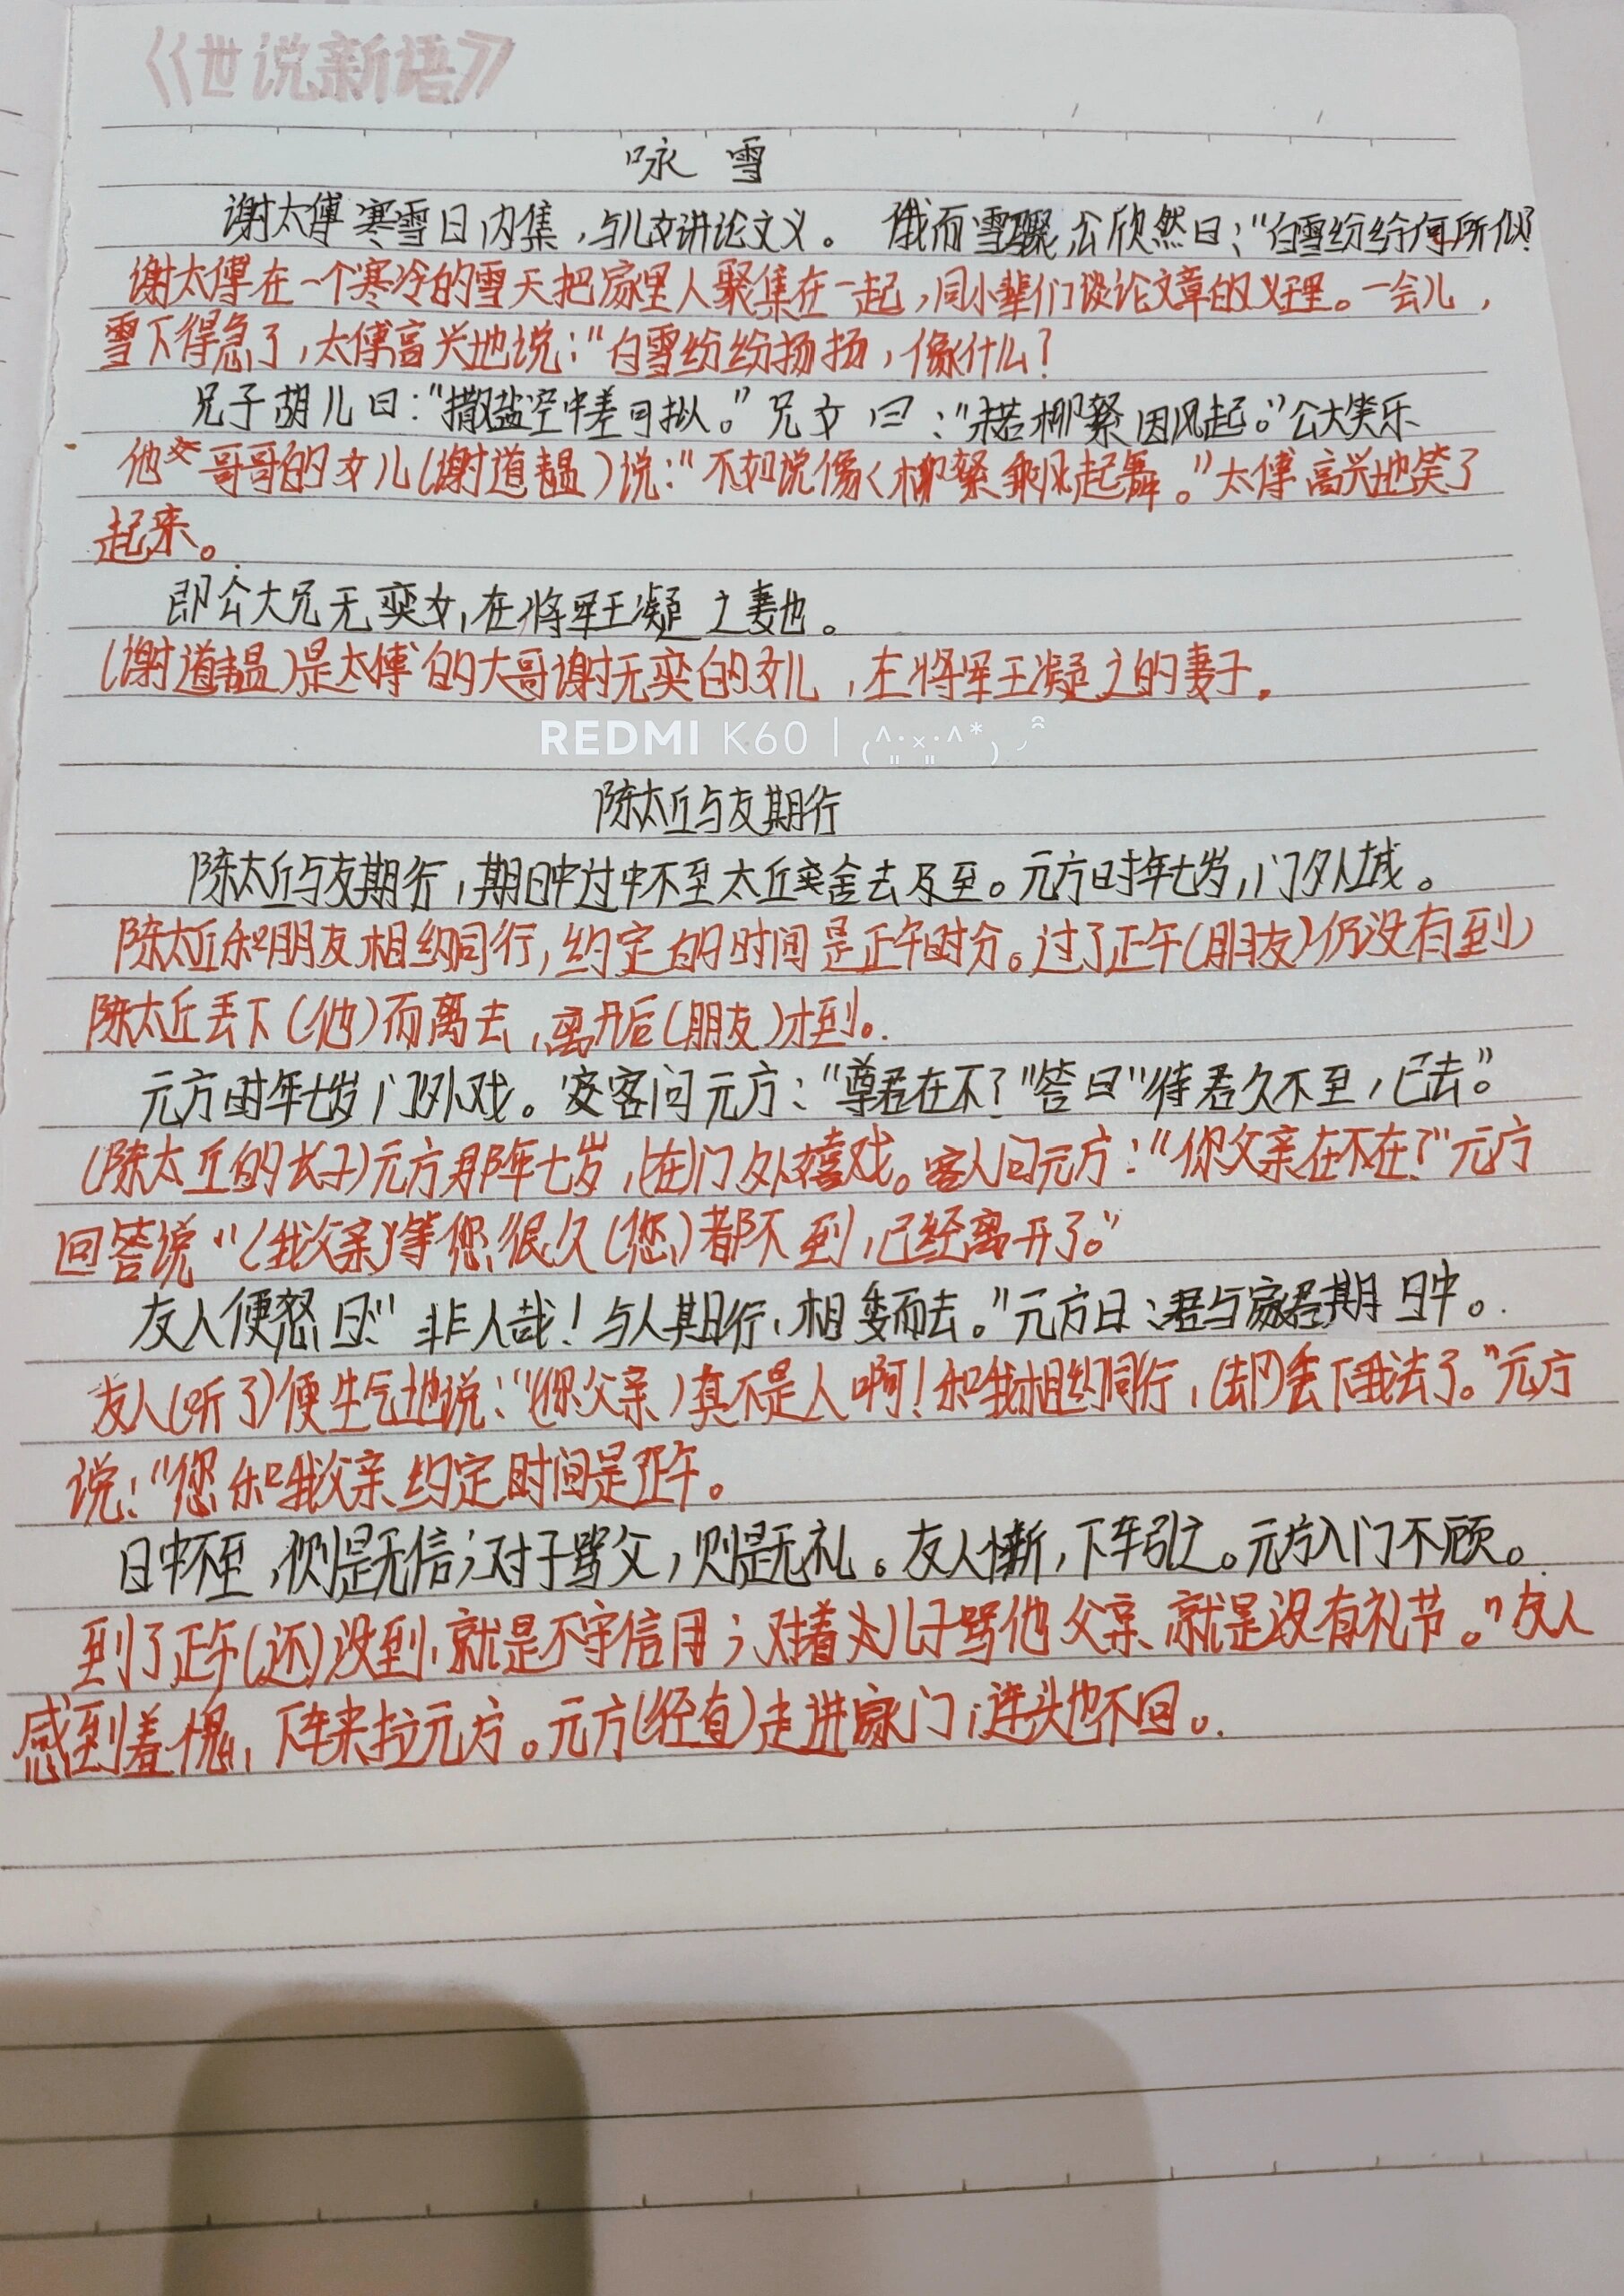 《世说新语》
咏雪
谢太傅寒雪日内集,与儿女讲论文义。 俄而雪骤,公欣然曰:"白雪纷纷何所似?
谢太傅在一个寒冷的雪天把家里人聚集在一起,同小辈们谈论文章的义理。一会儿,
雪下得急了,太傅高兴地说:"白雪纷纷扬扬,像什么?
兄子胡儿曰:"撒盐空中差可拟。"兄女曰:"未若柳絮因风起。"公大笑乐
他 哥哥的女儿(谢道韫)说:"不如说像 柳絮乘风起舞。"太傅高兴地笑了
起来。
即公大兄无奕女,在将军王凝之妻也。
(谢道韫)是太傅的大哥谢无奕的女儿,左将军王凝之的妻子。
REDMI K60 |
陈太丘与友期行
陈太丘与友期行,期日中过中不至太丘舍去 至。元方时年七岁,门外 。
陈太丘和朋友相约同行,约定的时间是正午时分。过了正午(朋友)仍没有到)
陈太丘丢下(他)而离去,离开后(朋友)才到。
元方时年七岁门外戏。客问元方:"尊君在不?"答曰"待君久不至,已去。"
(陈太丘的长子)元方那年七岁,(在)门外嬉戏。客人问元方:"你父亲在不在?"元方
回答说"(我父亲)等您很久(您)都不到,已经离开了。"
友人便怒曰:"非人哉!与人期行,相委而去。"元方曰:君与家君期日中。
友人(听了)便生气地说:"(你父亲)真不是人啊!和我相约同行,(却)丢下我去了。"元方
说:"您和我父亲约定时间是正午。
日中不至,则是无信;对子骂父,则是无礼。友人惭,下车引之。元方入门不顾。
到了正午(还)没到,就是不守信用;对着 儿子骂他父亲就是没有礼节。"友人
感到羞愧,下车来拉元方。元方(径直)走进家门,连头也不回。